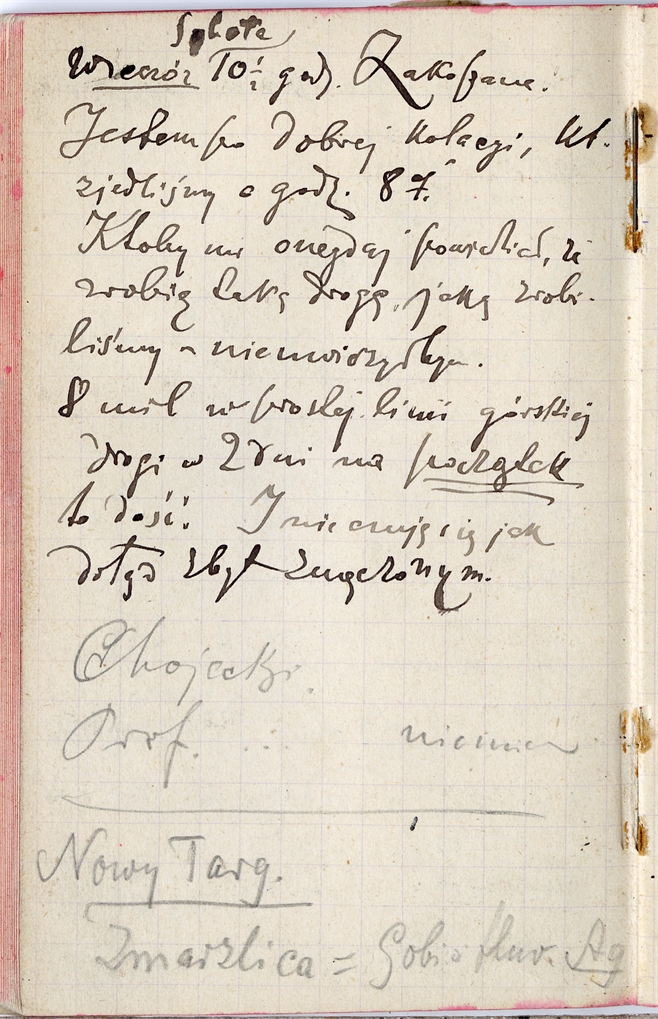 Sobota
Wieczór 10½ godz. Zakopane.
Jestem po dobrej kolacyi, kt.
zjedliśmy o godz. 8
Ktoby mi onegdaj powiedział, że
zrobię taką drogę, jaką zrobi-
liśmy – nieuwierzyłbym.
8 mil w prostej linii górskiej
drogi w 2 dni na początek
to dość. I nie czuję się jak
dotąd zbyt zmęczonym.
Chojecki
Prof. niemiec
Nowy Targ.
Zmarzlica = Gobio fluv. Ag